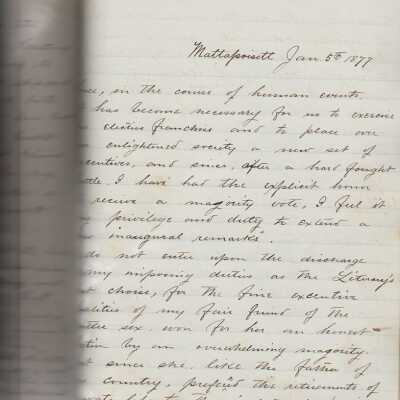 Mattapoisett Jan. 5th 1877
in the course of human events,
has become necessary for us to exercise
elective franchise and to place over
enlightened society a new set of
and since, after a hard fought
I have had the explicit honor
receive a majority vote, I feel it
privilege and duty to extend a
"inaugural remarks".
do not enter upon the discharge
my imposing duties as the Literary's
choice, for the fine executive
of my fair friend of the
sex won for her an honest
by an overwhelming majority.
since she, like the father of
country, prefered the retirements of